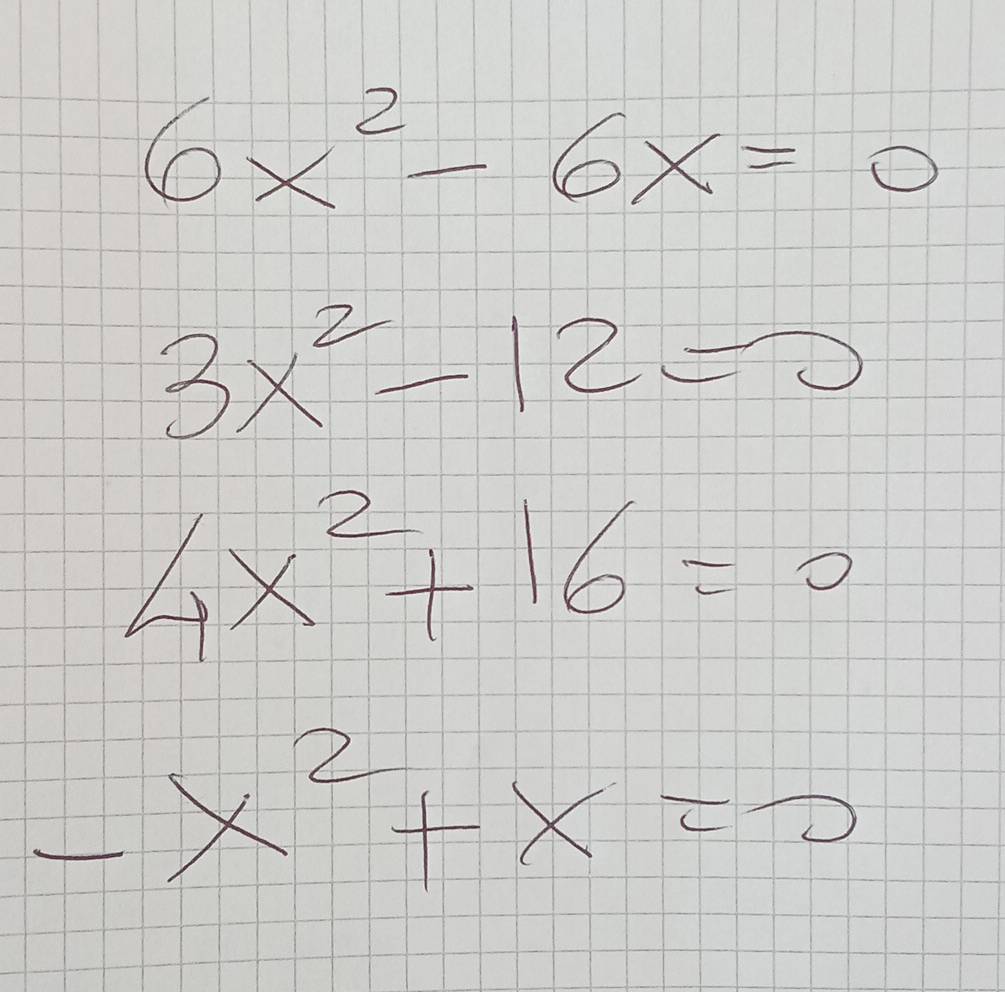 6x² - 6x = 0
3x² - 12 = 0
4x² + 16 = 0
-x² + x = 0